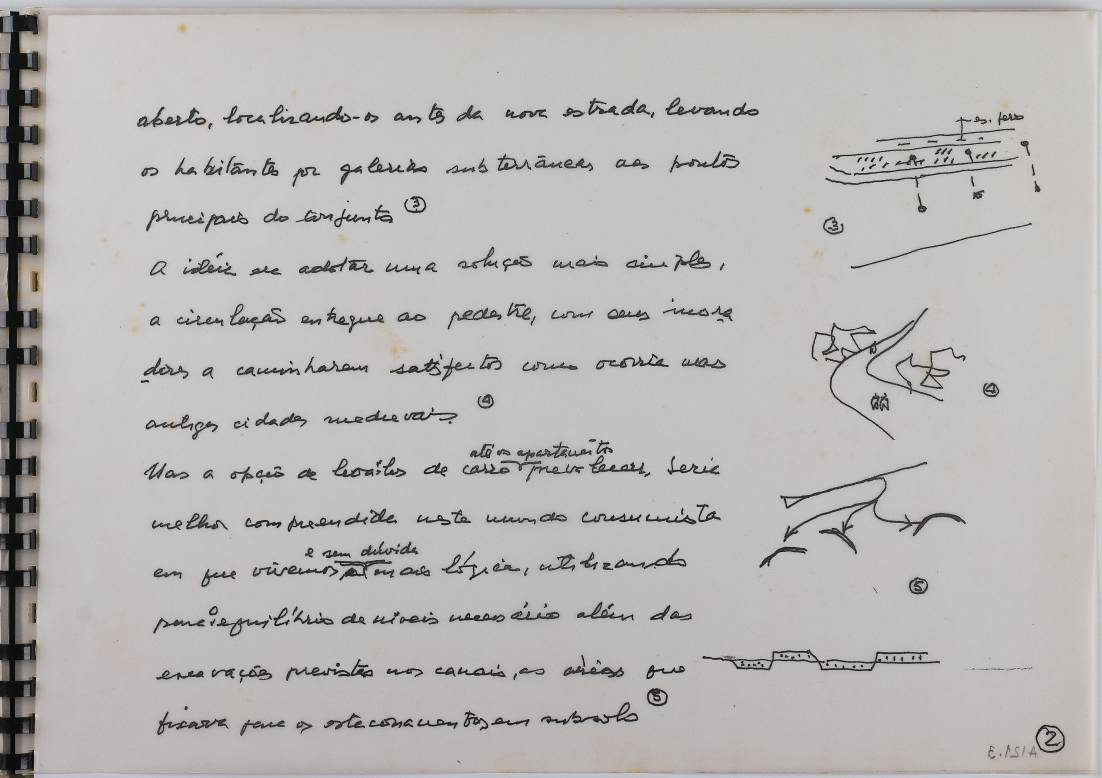 aberto, localizando-os antes da nova estrada, levando
os habitantes por galerias subterrâneas aos pontos
principais do conjunto ③
A idéia era adotar uma solução mais simples,
a circulação entregue ao pedestre, com seus mora
dores a caminharem satisfeitos como ocorria nas
antigas cidades medievais. ④
até os apartamentos
Mas a opção de levá-los de carro prevaleceu. Seria
melhor compreendida neste mundo consumista
e sem dúvida
em que vivemos mais lógica, utilizando
para o equilíbrio de níveis necessário além das
escavações previstas nos canais, as áreas que
fixava para os estacionamentos em subsolo ⑤
es. ferro
③
④
⑤
E.151A ②